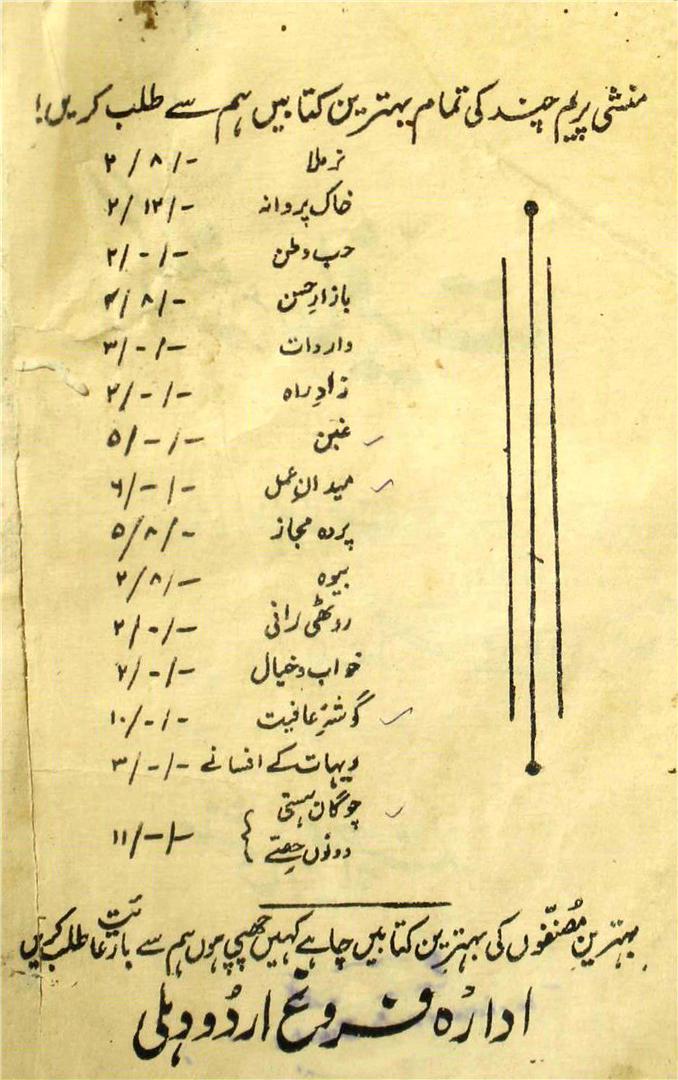 منشی پریم چند کی تمام بہترین کتابیں ہم سے طلب کریں!
نرملا ۲/۸/-
خاک پروانہ ۲/۱۲/-
حب وطن ۲/-/-
بازارِ حسن ۴/۸/-
واردات ۳/-/-
زادِ راہ ۲/-/-
غبن ۵/-/-
میدانِ عمل ۶/-/-
پردہ مجاز ۵/۸/-
بیوہ ۲/۸/-
روٹھی رانی ۲/-/-
خواب و خیال ۲/-/-
گوشۂ عافیت ۱۰/-/-
دیہات کے افسانے ۳/-/-
چوگان ہستی
دونوں حصّے ۱۱/-/-
بہترین مُصنّفوں کی بہترین کتابیں چاہے کہیں چھپی ہوں ہم سے بازعائت طلب کریں
ادارہ فروغ اردو دہلی